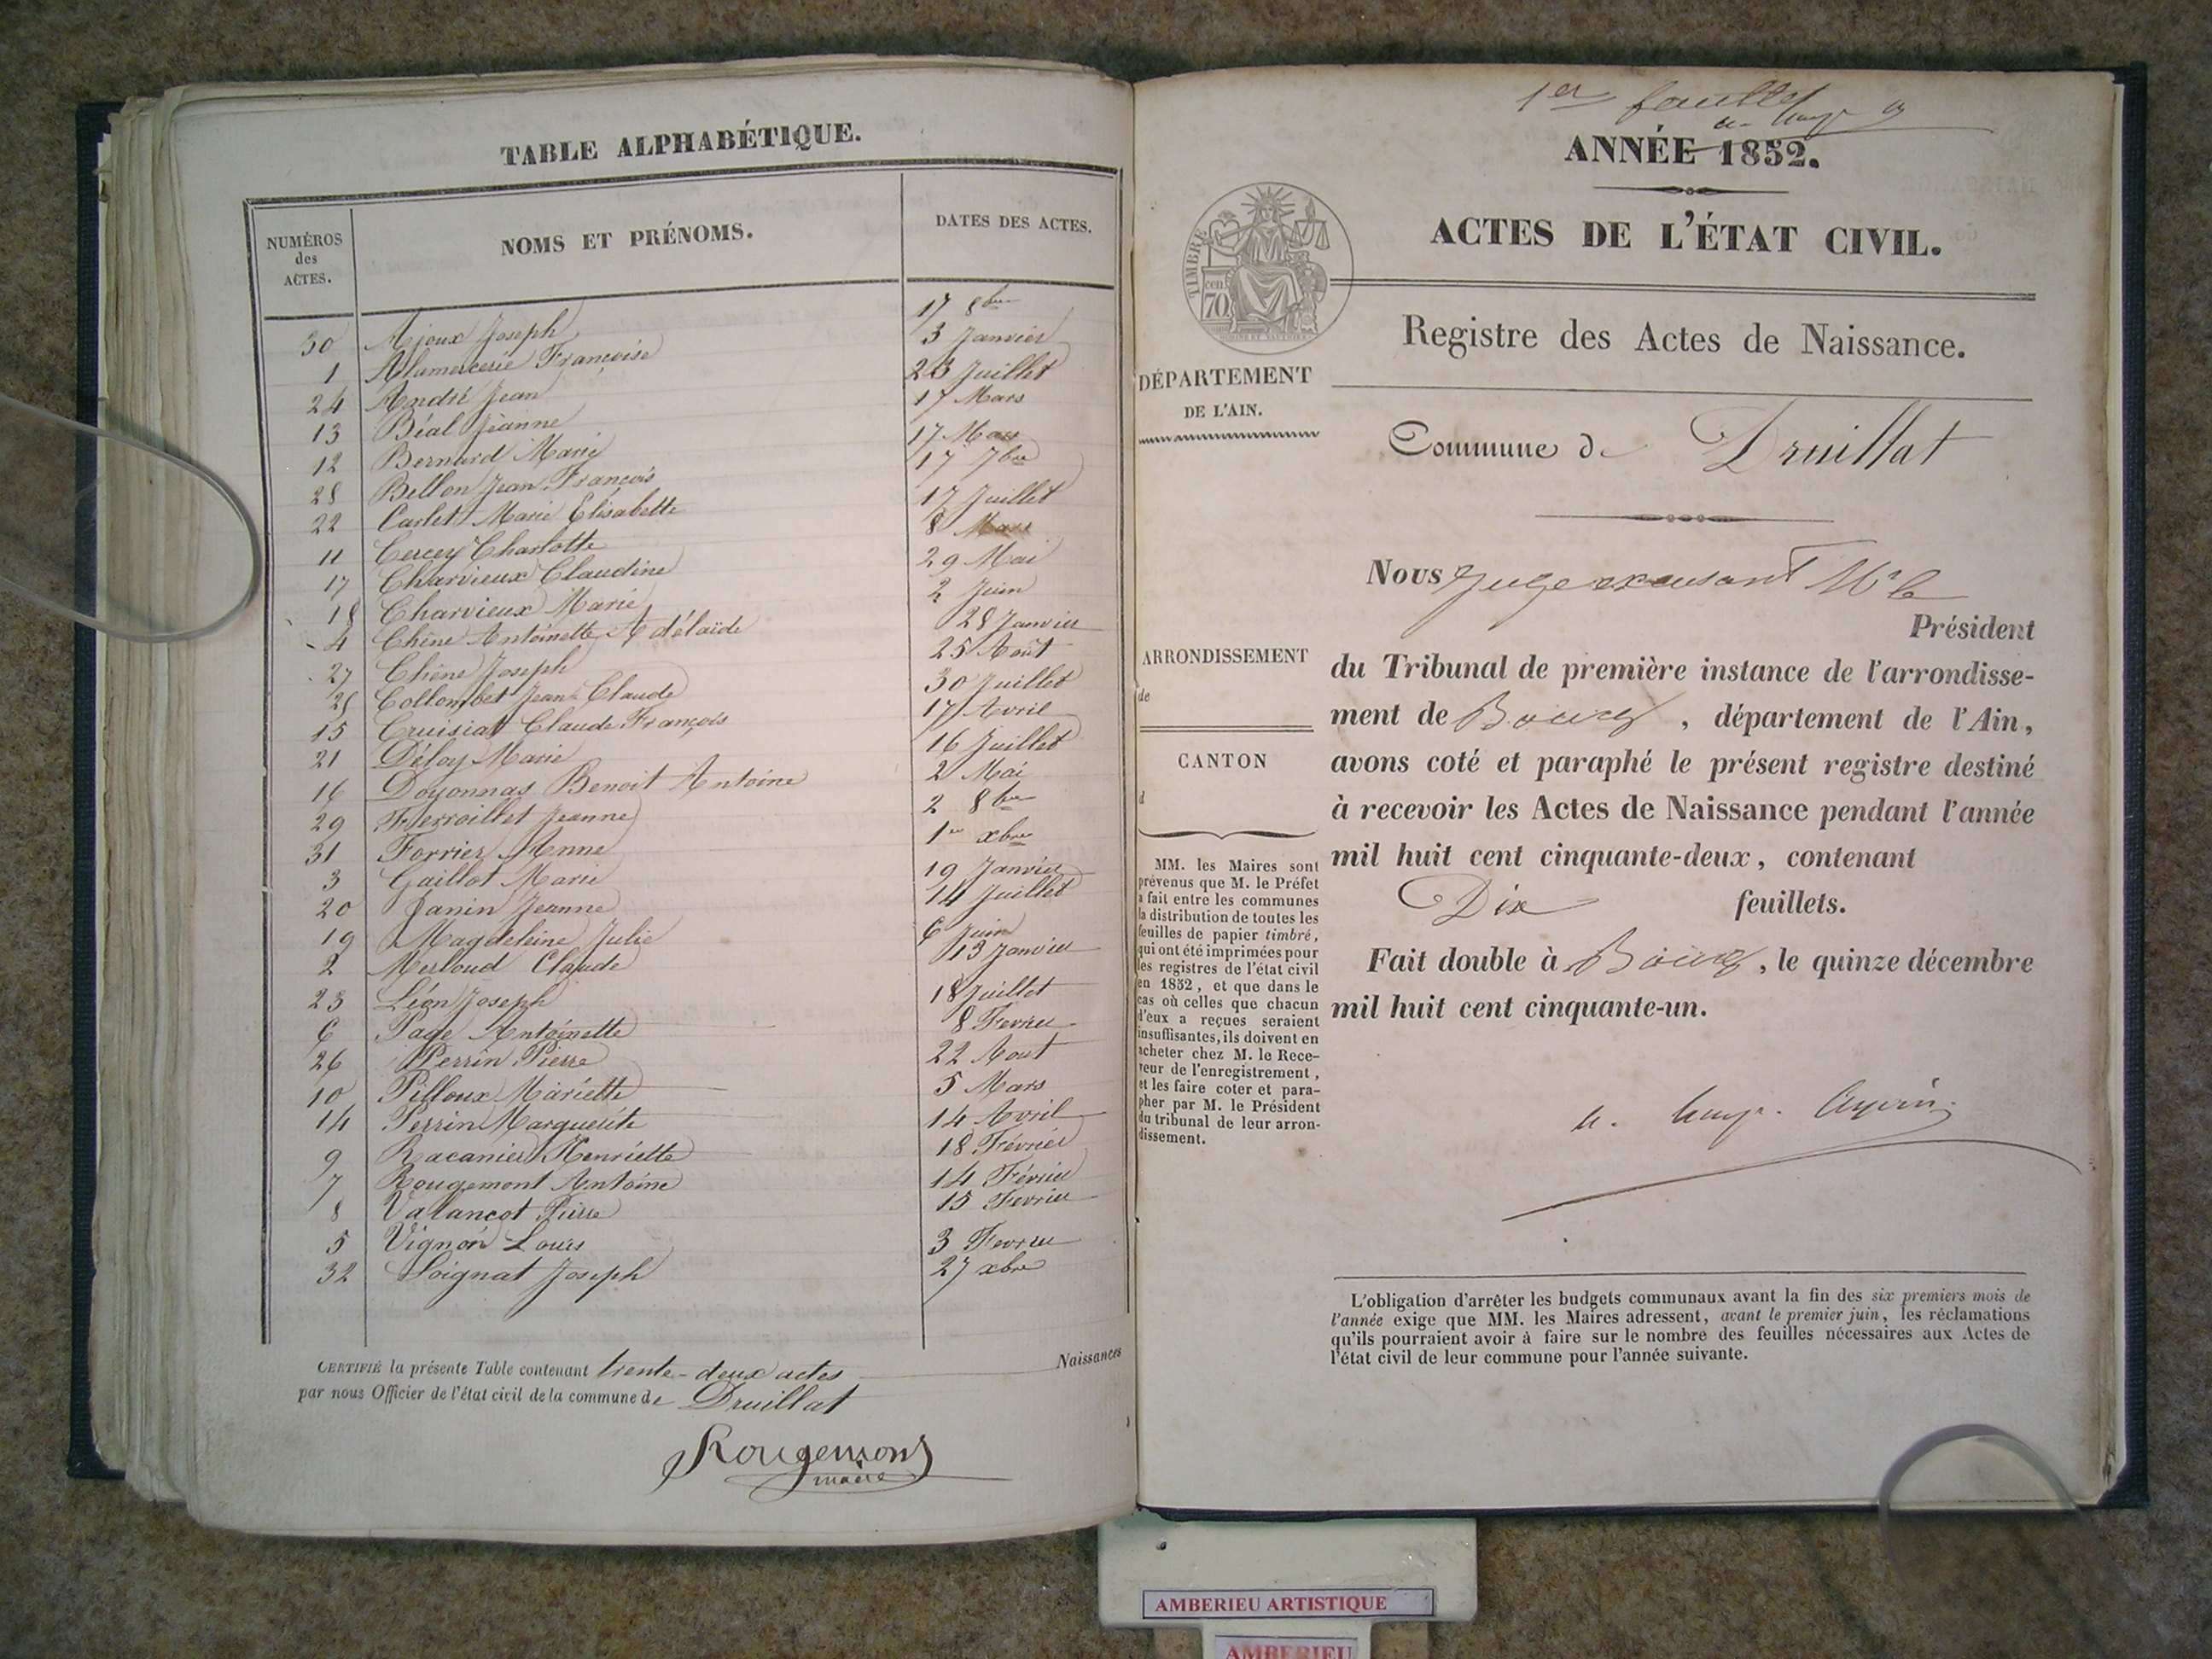 TABLE ALPHABÉTIQUE.
NUMÉROS des ACTES. NOMS ET PRÉNOMS. DATES DES ACTES.
30 Ajoux Joseph 17 8bre
1 Alamercerie Françoise 3 Janvier
24 André Jean 28 Juillet
13 Béal Jeanne 17 Mars
12 Bernard Marie 17 Mars
28 Bellon Jean François 17 7bre
22 Carlet Marie Elisabette 17 Juillet
11 Cercey Charlotte 8 Mars
17 Charvieux Claudine 29 Mai
18 Charvieux Marie 2 Juin
4 Chêne Antoinette Adélaïde 28 Janvier
27 Chêne Joseph 25 Août
25 Collombet Jean Claude 30 Juillet
15 Cruisiat Claude François 17 Avril
21 Déloy Marie 16 Juillet
16 Doyonnas Benoit Antoine 2 Mai
29 Ferroillet Jeanne 2 8bre
31 Forrier Anne 1er xbre
3 Gaillot Marie 19 Janvier
20 Janin Jeanne 14 Juillet
19 Magdeleine Julie 6 Juin
2 Merloud Claude 13 Janvier
23 Léon Joseph 18 Juillet
6 Page Antoinette 8 Fevrier
26 Perrin Pierre 22 Aout
10 Pilloux Mariette 5 Mars
14 Perrin Marguerite 14 Avril
9 Racanier Henriette 18 Février
7 Rougemont Antoine 14 Février
8 Valancot Pierre 15 Fevrier
5 Vignon Louis 3 Fevrier
32 Loignat Joseph 27 xbre
CERTIFIÉ la présente Table contenant trente-deux actes Naissances
par nous Officier de l'état civil de la commune de Druillat
Rougemont
maire
1er feuillet
ANNÉE 1852.
ACTES DE L'ÉTAT CIVIL.
TIMBRE
70 cen.
Registre des Actes de Naissance.
DÉPARTEMENT
DE L'AIN.
Commune de Druillat
Nous Juge excusant Mr le
Président
ARRONDISSEMENT
de
CANTON
d
du Tribunal de première instance de l'arrondisse-
ment de Bourg, département de l'Ain,
avons coté et paraphé le présent registre destiné
à recevoir les Actes de Naissance pendant l'année
mil huit cent cinquante-deux, contenant
Dix feuillets.
Fait double à Bourg, le quinze décembre
mil huit cent cinquante-un.
MM. les Maires sont
prévenus que M. le Préfet
a fait entre les communes
la distribution de toutes les
feuilles de papier timbré,
qui ont été imprimées pour
les registres de l'état civil
en 1852, et que dans le
cas où celles que chacun
d'eux a reçues seraient
insuffisantes, ils doivent en
acheter chez M. le Rece-
veur de l'enregistrement,
et les faire coter et para-
pher par M. le Président
du tribunal de leur arron-
dissement.
L'obligation d'arrêter les budgets communaux avant la fin des six premiers mois de
l'année exige que MM. les Maires adressent, avant le premier juin, les réclamations
qu'ils pourraient avoir à faire sur le nombre des feuilles nécessaires aux Actes de
l'état civil de leur commune pour l'année suivante.
AMBERIEU ARTISTIQUE
AMBERIEU